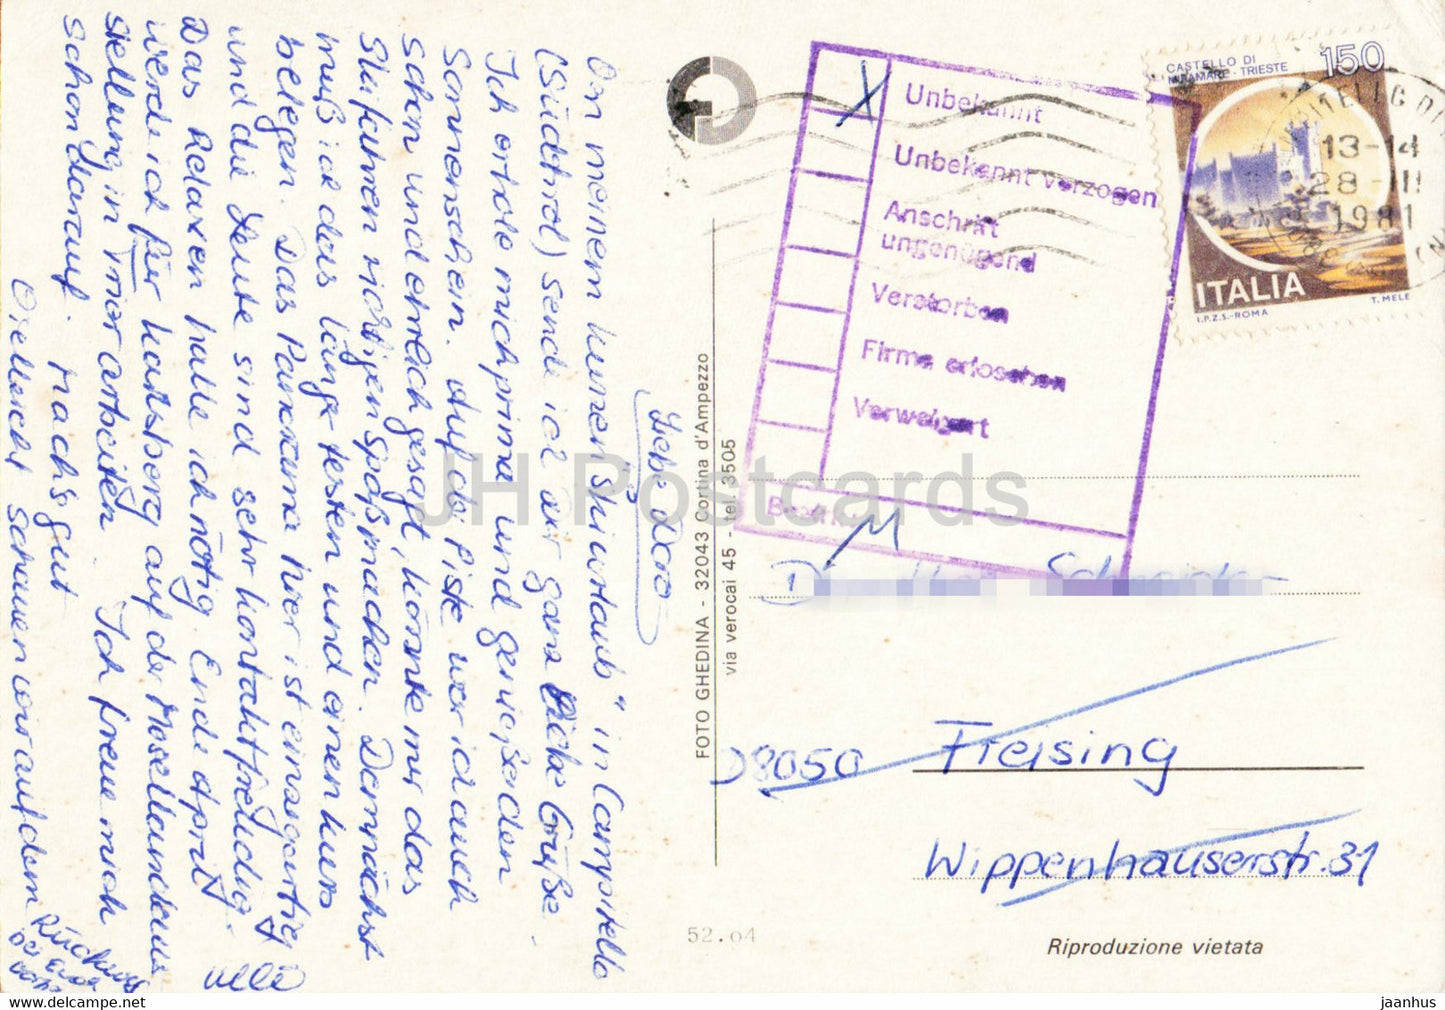 Liebe Dora
Von meinem kurzen "Skiurlaub" in Campitello
(Südtirol) sende ich dir ganz liebe Grüße.
Ich erhole mich prima und genieße den
Sonnenschein. Auf der Piste war ich auch
schon und ehrlich gesagt, könnte mir das
Skifahren richtigen Spaß machen. Demnächst
muß ich das länger testen und einen Kurs
belegen. Das Panorama hier ist einzigartig
und die Leute sind sehr kontaktfreudig.
Das Relaxen hatte ich nötig. Ende April
werde ich für
auf der
in
arbeiten. Ich freue mich
schon darauf. Machs gut
Vielleicht schauen wir auf dem
Rückweg
bei euch
vorbei
Ulla
FOTO GHEDINA - 32043 Cortina d'Ampezzo
via verocai 45 - tel 3505
52.04
CASTELLO DI
MIRAMARE - TRIESTE
150
ITALIA
T. MELE
I.P.Z.S.-ROMA
13-14
28-III
1981
X
Unbekannt
Unbekannt verzogen
Anschrift
ungenügend
Verstorben
Firma erloschen
Verweigert
D8050 Freising
Wippenhauserstr. 31
Riproduzione vietata
JH Postcards
jaanhus